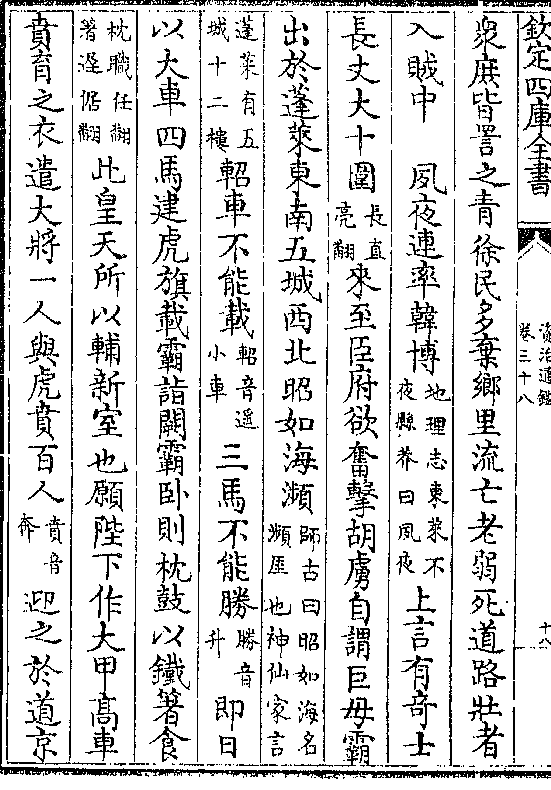 欽定四庫全書
資治通鑑
卷三十八
十八
衆庶皆詈之青徐民多棄鄉里流亡老弱死道路壯者
入賊中 夙夜連率韓博地理志東萊不夜縣莽曰夙夜上言有奇士
長丈大十圍長直亮翻來至臣府欲奮擊胡虜自謂巨毋霸
出於蓬萊東南五城西北昭如海瀕師古曰昭如海名瀕厓也神仙家言
蓬萊有五城十二樓軺車不能載軺音遥小車三馬不能勝勝音升即日
以大車四馬建虎旗載霸詣闕霸卧則枕鼓以鐵箸食
枕職任翻箸遲倨翻此皇天所以輔新室也願陛下作大甲高車
賁育之衣遣大將一人與虎賁百人賁音奔迎之於道京